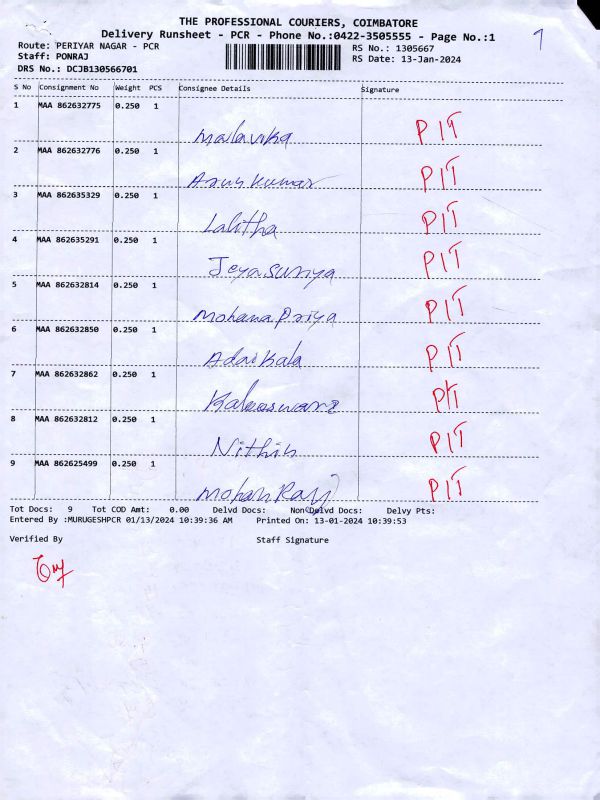 THE PROFESSIONAL COURIERS, COIMBATORE
Delivery Runsheet - PCR - Phone No.:0422-3505555 - Page No.:1
Route: PERIYAR NAGAR - PCR RS No.: 1305667
Staff: PONRAJ RS Date: 13-Jan-2024
DRS No.: DCJB130566701
S No Consignment No Weight PCS Consignee Details Signature
1 MAA 862632775 0.250 1
Malavika PIT
2 MAA 862632776 0.250 1
Arun kumar PIT
3 MAA 862635329 0.250 1
Lalitha PIT
4 MAA 862635291 0.250 1
Jeyasuriya PIT
5 MAA 862632814 0.250 1
Mohana Priya PIT
6 MAA 862632850 0.250 1
Adaikala PIT
7 MAA 862632862 0.250 1
PIT
8 MAA 862632812 0.250 1
Nithin PIT
9 MAA 862625499 0.250 1
Mohan Raj PIT
Tot Docs: 9 Tot COD Amt: 0.00 Delvd Docs: Non Delvd Docs: Delvy Pts:
Entered By :MURUGESHPCR 01/13/2024 10:39:36 AM Printed On: 13-01-2024 10:39:53
Verified By Staff Signature